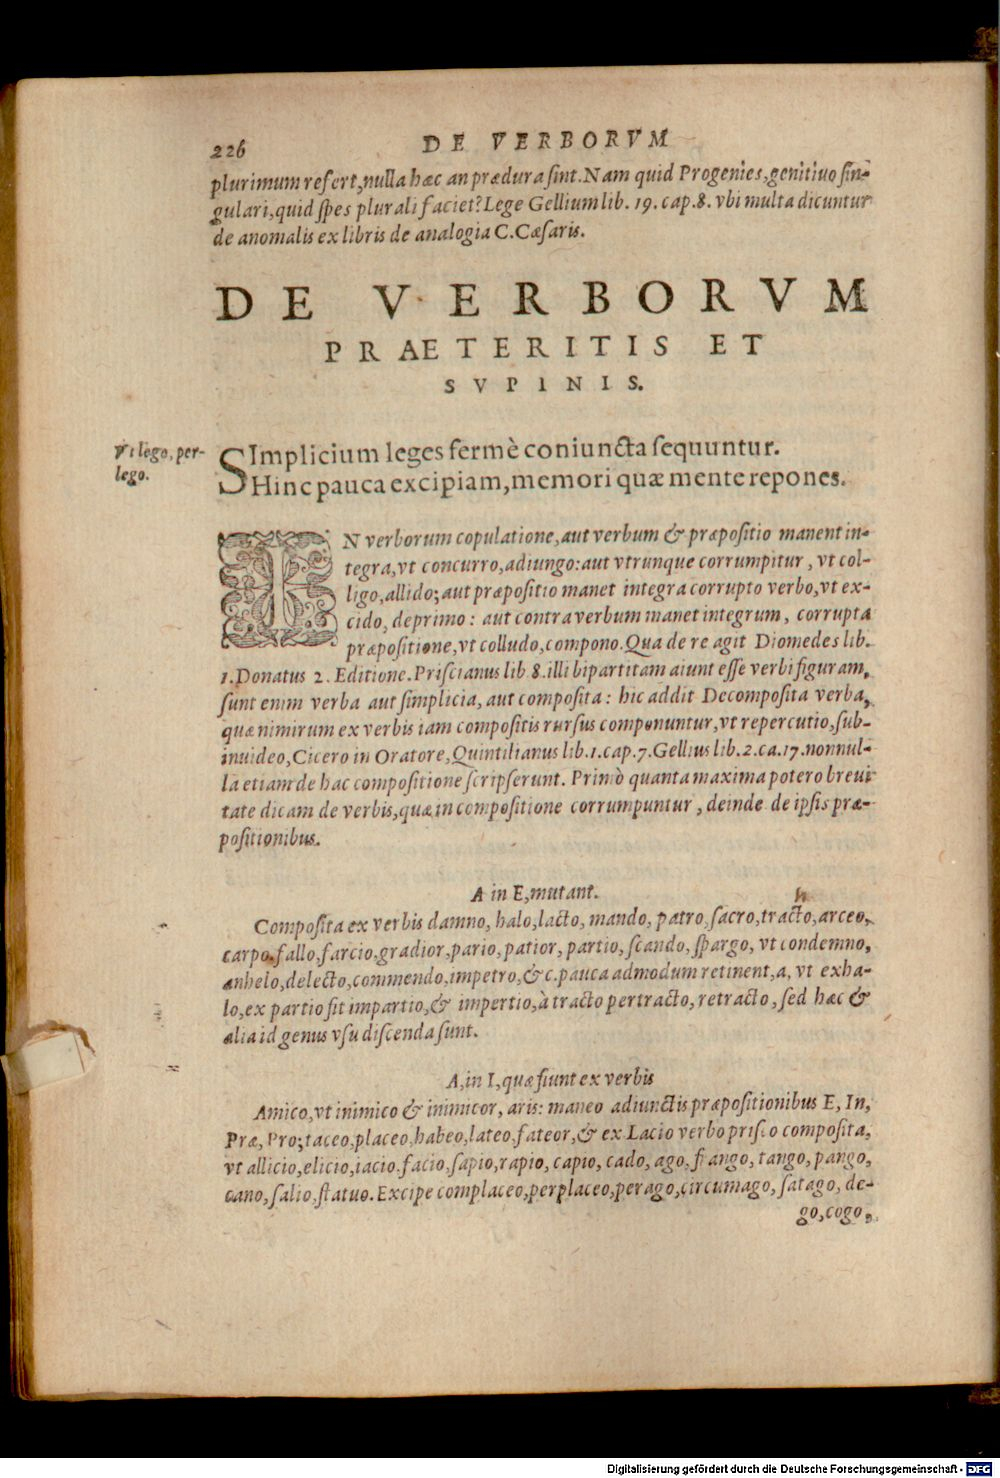 226
DE VERBORVM
plurimum refert, nulla hæc an prædura sint. Nam quid Progenies, genitiuo sin-
gulari, quid spes plurali faciet? Lege Gellium lib. 19. cap. 8. vbi multa dicuntur
de anomalis ex libris de analogia C. Cæsaris.
DE VERBORVM
PRAETERITIS ET
SVPINIS.
Vt lego, per-
lego.
SImplicium leges fermè coniuncta sequuntur.
Hinc pauca excipiam, memori quæ mente repones.
IN verborum copulatione, aut verbum & præpositio manent in-
tegra, vt concurro, adiungo: aut vtrunque corrumpitur, vt col-
ligo, allido; aut præpositio manet integra corrupto verbo, vt ex-
cido, deprimo: aut contra verbum manet integrum, corrupta
præpositione, vt colludo, compono. Qua de re agit Diomedes lib.
1. Donatus 2. Editione. Priscianus lib 8. illi bipartitam aiunt esse verbi figuram,
sunt enim verba aut simplicia, aut composita: hic addit Decomposita verba,
quæ nimirum ex verbis iam compositis rursus componuntur, vt repercutio, sub-
inuideo, Cicero in Oratore, Quintilianus lib. 1. cap. 7. Gellius lib. 2. ca. 17. nonnul-
la etiam de hac compositione scripserunt. Primò quanta maxima potero breui
tate dicam de verbis, quæ in compositione corrumpuntur, deinde de ipsis præ-
positionibus.
A in E, mutant.
Composita ex verbis damno, halo, lacto, mando, patro, sacro, tracto, arceo,
carpo, fallo, farcio, gradior, pario, patior, partio, scando, spargo, vt condemno,
anhelo, delecto, commendo, impetro, &c. pauca admodum retinent, a, vt exha-
lo, ex partio sit impartio, & impertio, à tracto pertracto, retracto, sed hæc &
alia id genus vsu discenda sunt.
A, in I, quæ fiunt ex verbis
Amico, vt inimico & inimicor, aris: maneo adiunctis præpositionibus E, In,
Præ, Pro; taceo, placeo, habeo, lateo, fateor, & ex Lacio verbo prisco composita,
vt allicio, elicio, iacio, facio, sapio, rapio, capio, cado, ago, frango, tango, pango,
cano, salio, statuo. Excipe complaceo, perplaceo, perago, circumago, satago, de-
go, cogo,
Digitalisierung gefördert durch die Deutsche Forschungsgemeinschaft - DFG